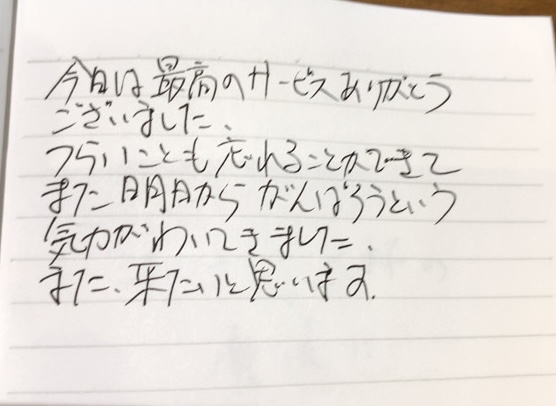 今日は最高のサービスありがとう
ございました、
つらいことも忘れることができて
また明日からがんばろうという
気力がわいてきました、
また、来たいと思います.